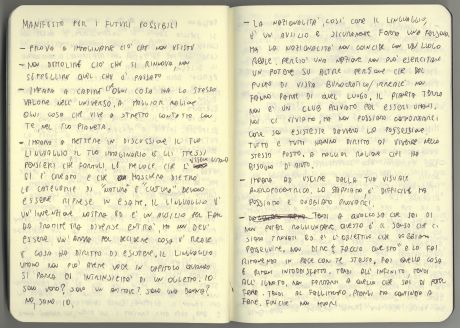 MANIFESTO PER I FUTURI POSSIBILI
- PROVA A IMMAGINARE CIÒ CHE NON ESISTE
- NON DEMOLIRE CIÒ CHE SI RINNOVA, NON
SEPPELLIRE QUEL CHE È PASSATO
- IMPARA A CAPIRE OGNI COSA HA LO STESSO
VALORE NELL'UNIVERSO, A MAGGIOR RAGIONE
OGNI COSA CHE VIVE A STRETTO CONTATTO CON
TE, NEL TUO PIANETA.
- IMPARA A METTERE IN DISCUSSIONE IL TUO
LINGUAGGIO, IL TUO IMMAGINARIO E GLI STESSI
PENSIERI CHE FORMULI. LE PAROLE CHE L'
SI È CREATO E CHE MACCHINA DIETRO
LE CATEGORIE DI "NATURA" E "CULTURA" DEVONO
ESSERE RIPRESE IN ESAME. IL LINGUAGGIO È
UN'INVENZIONE NOSTRA ED È UN AUSILIO PER FARE
DA TRAMITE TRA DIVERSE ENTITÀ, MA NON DEV'
ESSERE UN'ARMA PER DECIDERE COSA È REALE
E COSA HA DIRITTO DI ESISTERE. IL LINGUAGGIO
UMANO NON PUÒ AVERE VOCE IN CAPITOLO QUANDO
SI PARLA DI INTRINSECITÀ DI UN OGGETTO. IO
SONO VERO? SONO UN ANIMALE? SONO UNA DONNA?
NO, SONO IO.
- LA NAZIONALITÀ, COSÌ COME IL LINGUAGGIO,
È UN AUSILIO E SICURAMENTE FORMA UNA PERSONA.
MA LA NAZIONALITÀ NON COINCIDE CON UN LUOGO
REALE, PERCIÒ UNA NAZIONE NON PUÒ ESERCITARE
UN POTERE SU ALTRE PERSONE CHE DAL
PUNTO DI VISTA BUROCRATICO/ NON
FANNO PARTE DI QUEL LUOGO. IL PIANETA TERRA
NON È UN CLUB PRIVATO PER ESSERI UMANI.
NOI CI VIVIAMO, MA NON POSSIAMO COMPORTARCI
COME SE ESISTESSE DAVVERO LA POSSESSIONE.
TUTTO E TUTTI HANNO DIRITTO DI VIVERE NELLO
STESSO POSTO, A MAGGIOR RAGIONE CHI HA
BISOGNO DI AIUTO.
- IMPARA AD USCIRE DALLA TUA VISUALE
ANTROPOCENTRICA, LO SAPPIAMO È DIFFICILE MA
POSSIAMO E DOBBIAMO PROVARCI.
- TENDI A QUALCOSA CHE SAI DI
NON POTER RAGGIUNGERE. QUESTO È IL SENSO CHE CI
SIAMO TROVATI ED È L'OBIETTIVO CHE DOBBIAMO
PERSEGUIRE. NON DIRE "FACCIO QUESTO" E LO FAI
RIMANENDO IN PACE CON TE STESSO, FAI QUELLA COSA
E RIMANI INSODDISFATTO. TENDI ALL'INFINITO, TENDI
ALL'IGNOTO, NON FERMARTI A QUELLO CHE SAI DI POTER
FARE. TENDI AL FALLIMENTO, PERMETTI MA CONTINUA A
FARE, FINCHÉ NON MUORI.